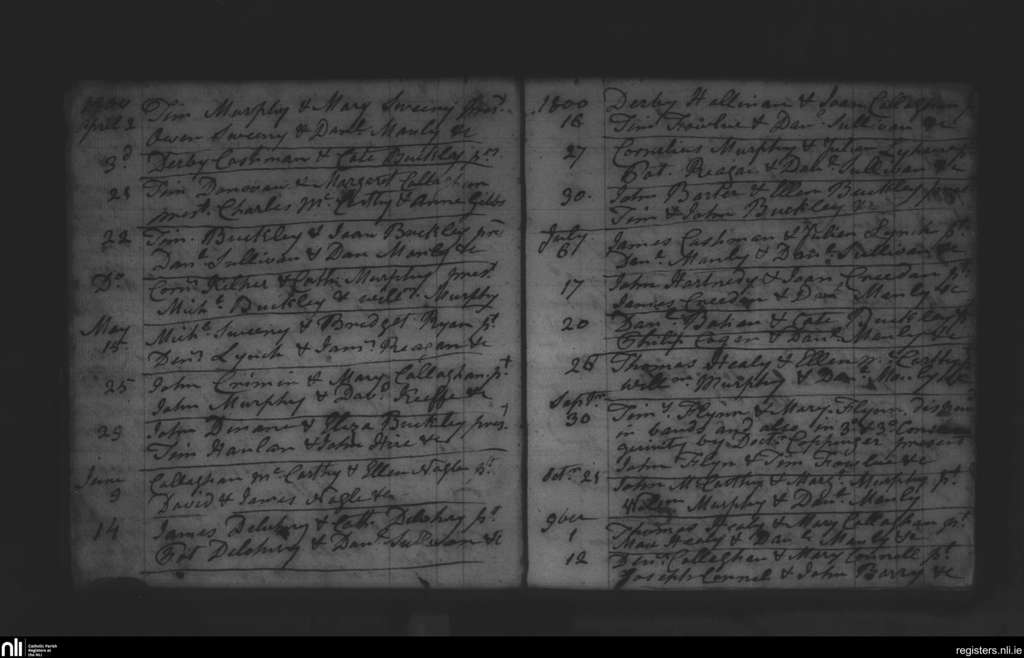 1800
April 2 Tim Murphy & Mary Sweeny prest.
Owen Sweeny & Danl. Manly &c
3d Derby Cashman & Cate Buckley pnt
23 Tim Donovan & Margaret Callaghan
prest. Charles Mc. Carthy & Anne Gibbs
22 Tim. Buckley & Joan Buckley prs
Danl. Sullivan & Dan Manly &c
Do. Corns. Keliher & Cath: Murphy prest.
Michl. Buckley & Willm. Murphy
May
15 Michl. Sweeny & Bridget Ryan pt
Denis Lynch & James Reagan &c
25 John Crimin & Mary Callaghan pt
John Murphy & Davd. Keeffe &c
29 John Dinane & Eliza Buckley pres.
Tim Hanlan & John Hire &c
June
9 Callaghan Mc. Carthy & Ellen Nagle pt.
David & James Nagle &c
14 James Delohery & Cath: Delohery pt.
Pat Delohery & Danl. Sullivan &c
1800 Derby Hallinan & Joan Callaghan
16 Tim Fowlue & Danl. Sullivan &c
27 Cornelius Murphy & Julian
Pat. Reagan & Danl. Sullivan &c
30. John Barter & Ellen Buckley prest
Tim & John Buckley &c
July
6 James Cashman & Julian Lynch pt.
Danl. Manly & Danl. Sullivan &c
17 John Hartnedy & Joan Creedan pt.
James Creedan & Danl. Manly &c
20 Danl. Bahan & Cate Buckley pt
Philip Cogan & Danl. Manly &c
26 Thomas Healy & Ellen Mc. Carthy
Willm. Murphy & Danl. Manly &c
Septbr.
30 Timy. Flynn & Mary Flynn,
in bands and also in 3d. & 3d.
by Doctr. Coppinger present
John Flyn & Tim Fowlue &c
Octr. 25 John McCarthy & Margt. Murphy pt.
Murphy & Danl. Manly
9ber
1 Thomas Healy & Mary Callaghan pt.
Healy & Danl. Manly &c
12 Denis Callaghan & Mary Connell pt.
Joseph Connel & John Barry &c
nli Catholic Parish
Registers at
the NLI
registers.nli.ie